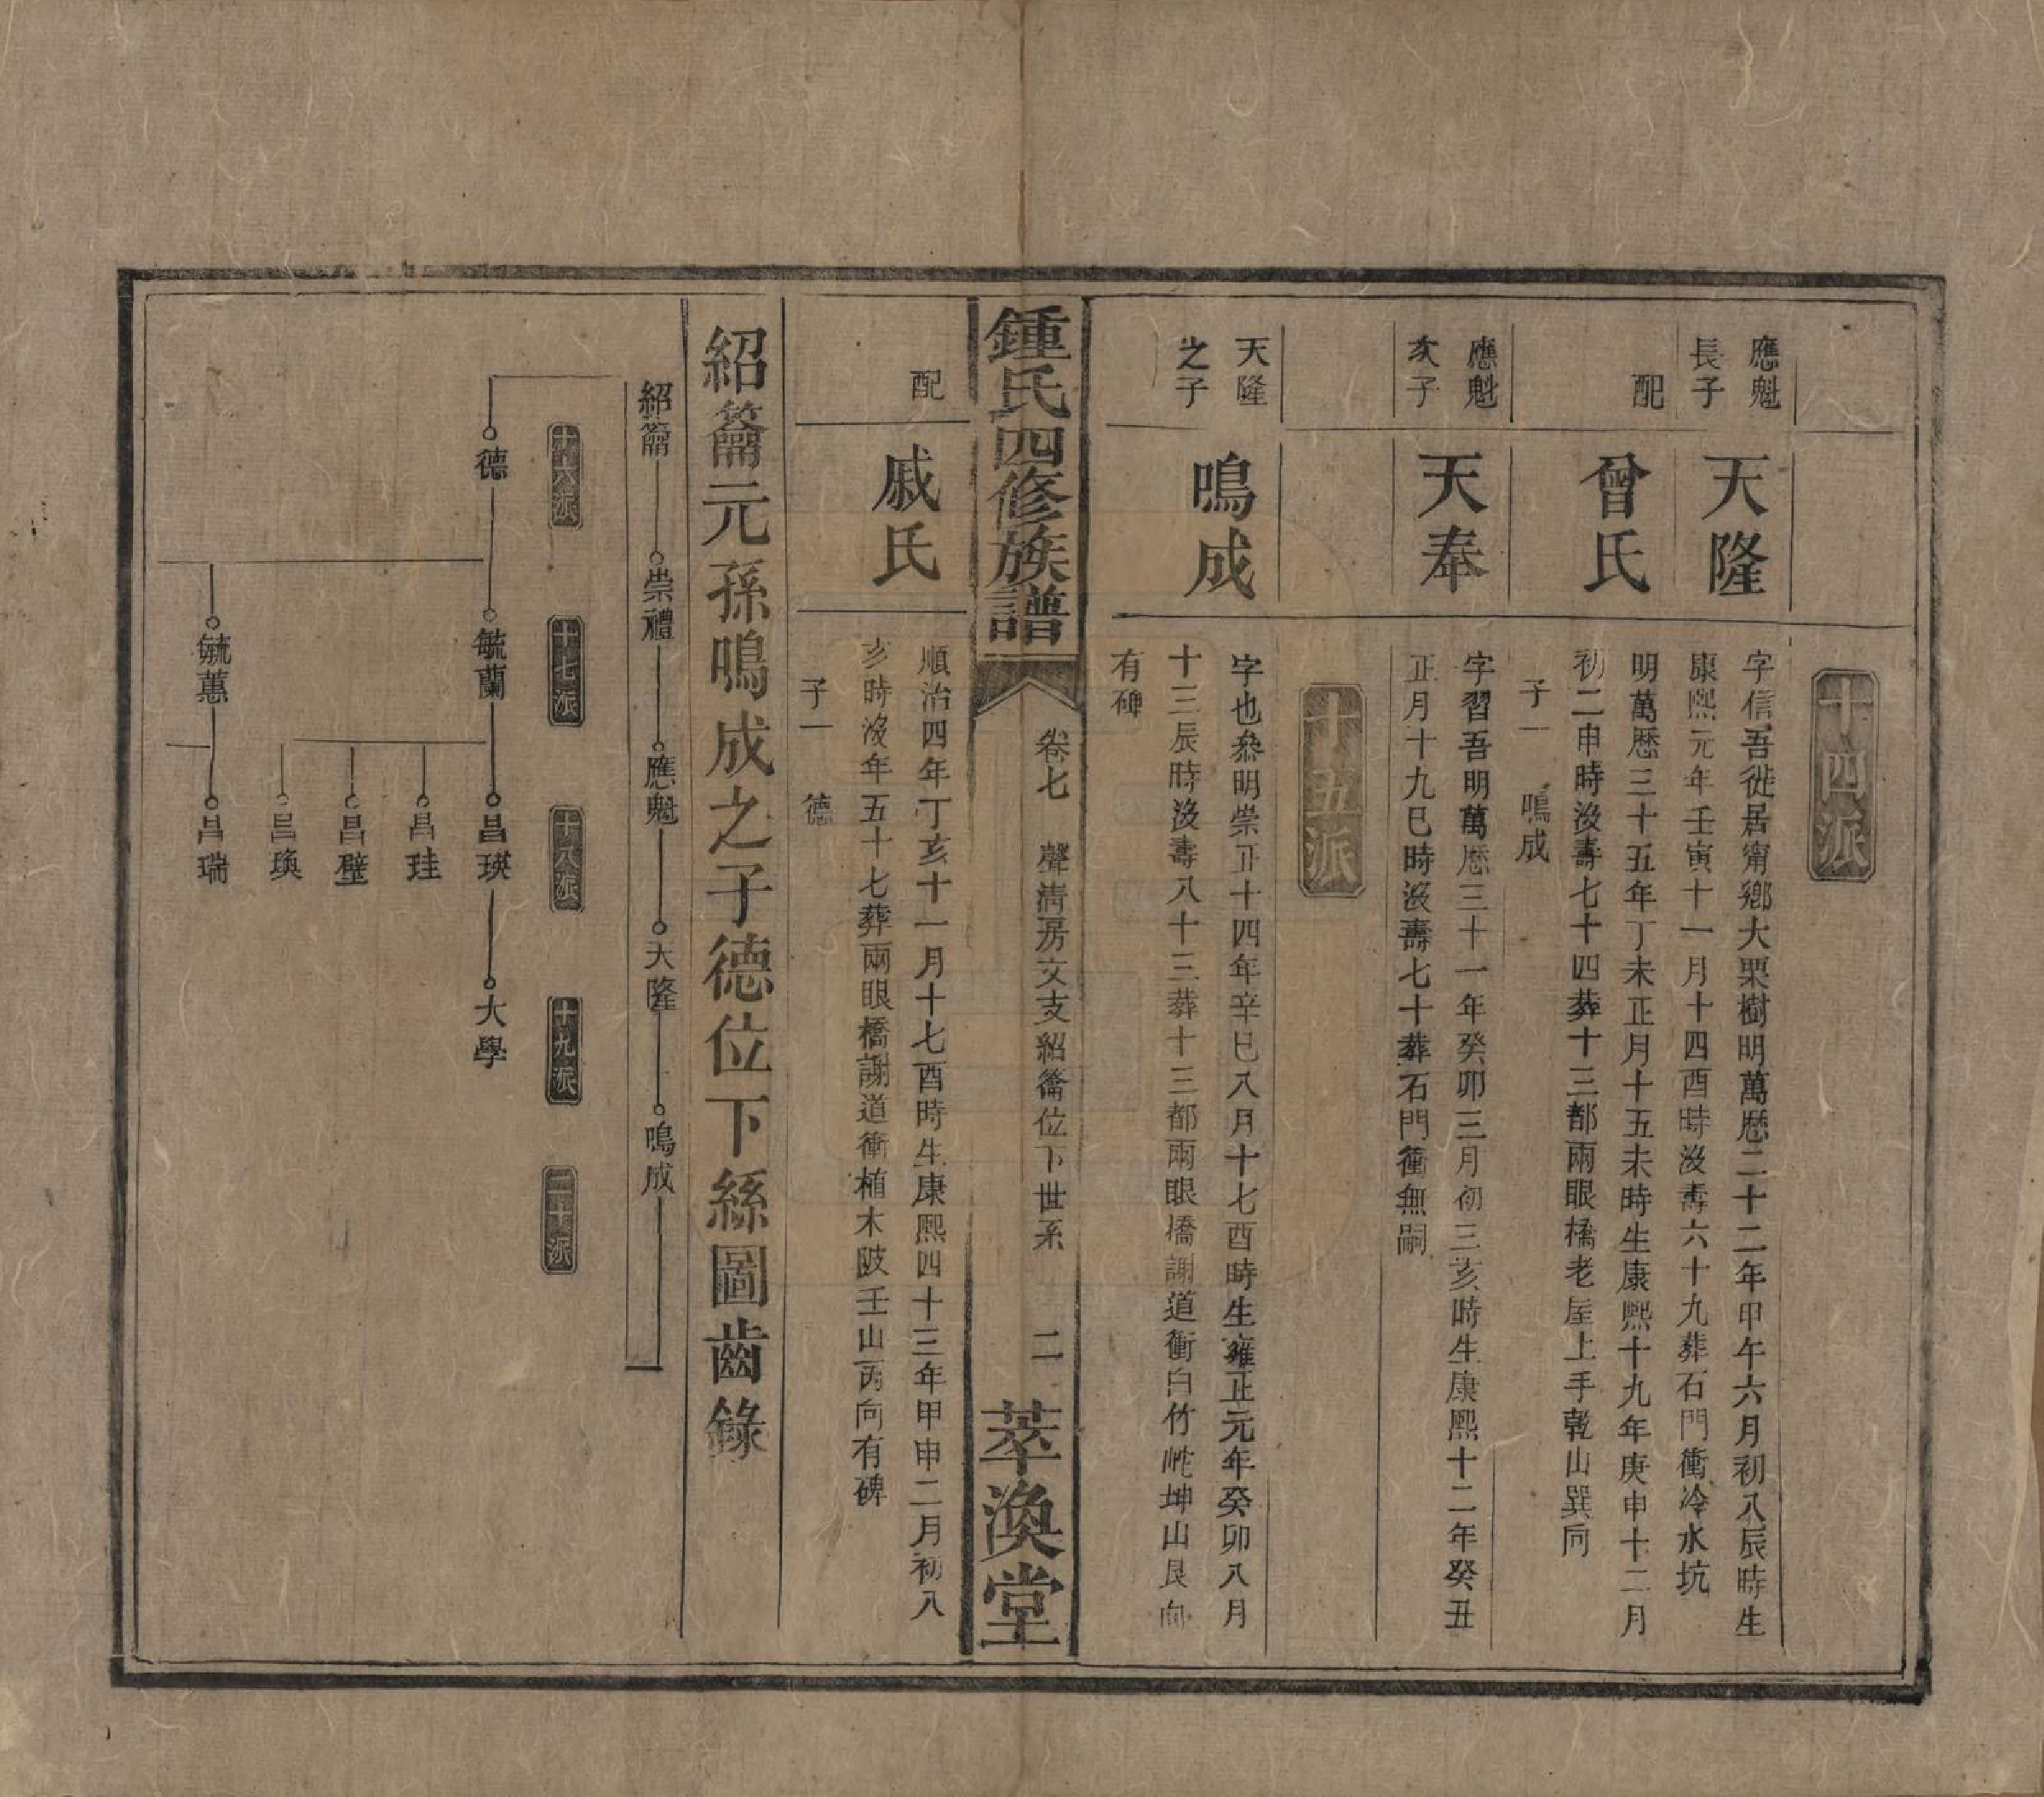 十四派
應魁
長子
天隆
字信吾徙居甯鄉大栗樹明萬歷二十二年甲午六月初八辰時生
康熙元年壬寅十一月十四酉時沒壽六十九葬石門衝冷水坑
配
曾氏
明萬歷三十五年丁未正月十五未時生康熙十九年庚申十二月
初二申時沒壽七十四葬十三都兩眼橋老屋上手乾山巽向
子一 鳴成
應魁
次子
天奉
字習吾明萬歷三十一年癸卯三月初三亥時生康熙十二年癸丑
正月十九巳時沒壽七十葬石門衝無嗣
十五派
天隆
之子
鳴成
字也參明崇正十四年辛巳八月十七酉時生雍正元年癸卯八月
十三辰時沒壽八十三葬十三都兩眼橋謝道衝白竹坤山艮向
有碑
鍾氏四修族譜
卷七 聲清房文支紹籥位下世系 二
萃渙堂
配
戚氏
順治四年丁亥十一月十七酉時生康熙四十三年甲申二月初八
亥時沒年五十七葬兩眼橋謝道衝楠木陂壬山丙向有碑
子一 德
紹籥元孫鳴成之子德位下絲圖齒錄
紹籥 崇禮 應魁 天隆 鳴成
十六派 十七派 十八派 十九派 二十派
德 毓蘭 昌瑛 大學
昌珪
昌璧
昌瑍
毓蕙 昌瑞